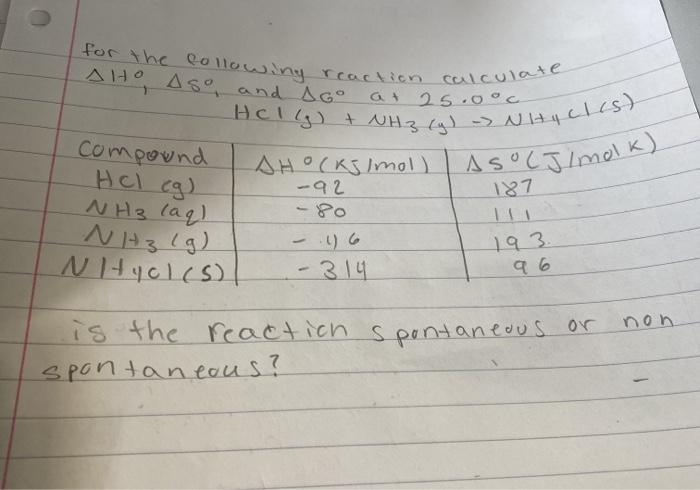 for the following reaction calculate
ΔH°, ΔS°, and ΔG° at 25.0°C
HCl (g) + NH3 (g) -> NH4Cl(s)
Compound ΔH°(KJ/mol) ΔS°(J/molK)
HCl (g) -92 187
NH3 (aq) -80 111
NH3 (g) -46 193
NH4Cl(s) -314 96
is the reaction spontaneous or non
spontaneous?